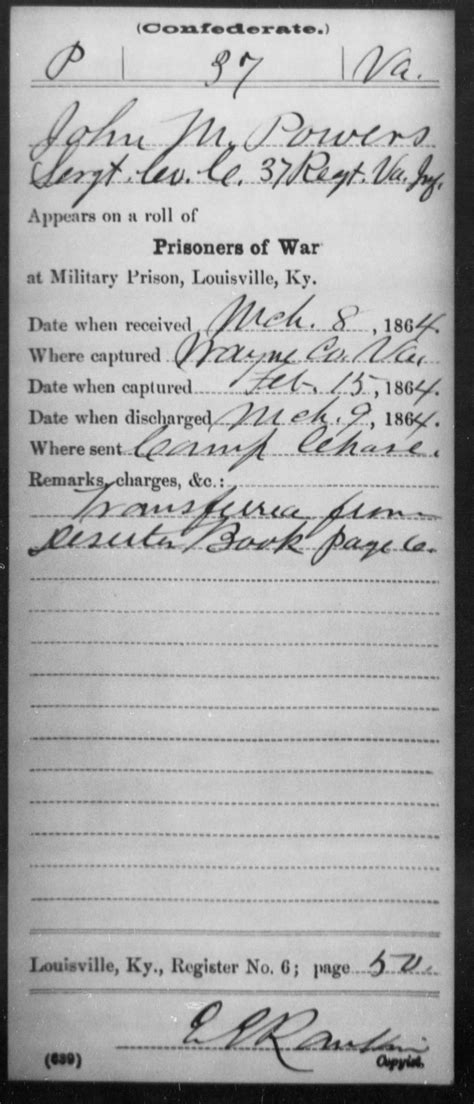 (Confederate.)
P | 37 | Va.
John M. Powers
Sergt. Co. C. 37 Regt. Va. Inf.
Appears on a roll of
Prisoners of War
at Military Prison, Louisville, Ky.
Date when received Mch. 8, 1864.
Where captured Wayne Co. Va.
Date when captured Feb. 15, 1864.
Date when discharged Mch. 9, 1864.
Where sent Camp Chase.
Remarks, charges, &c.:
Transferred from
Deserter Book page 6.
Louisville, Ky., Register No. 6; page 50.
E E Rankin
(639) Copyist.